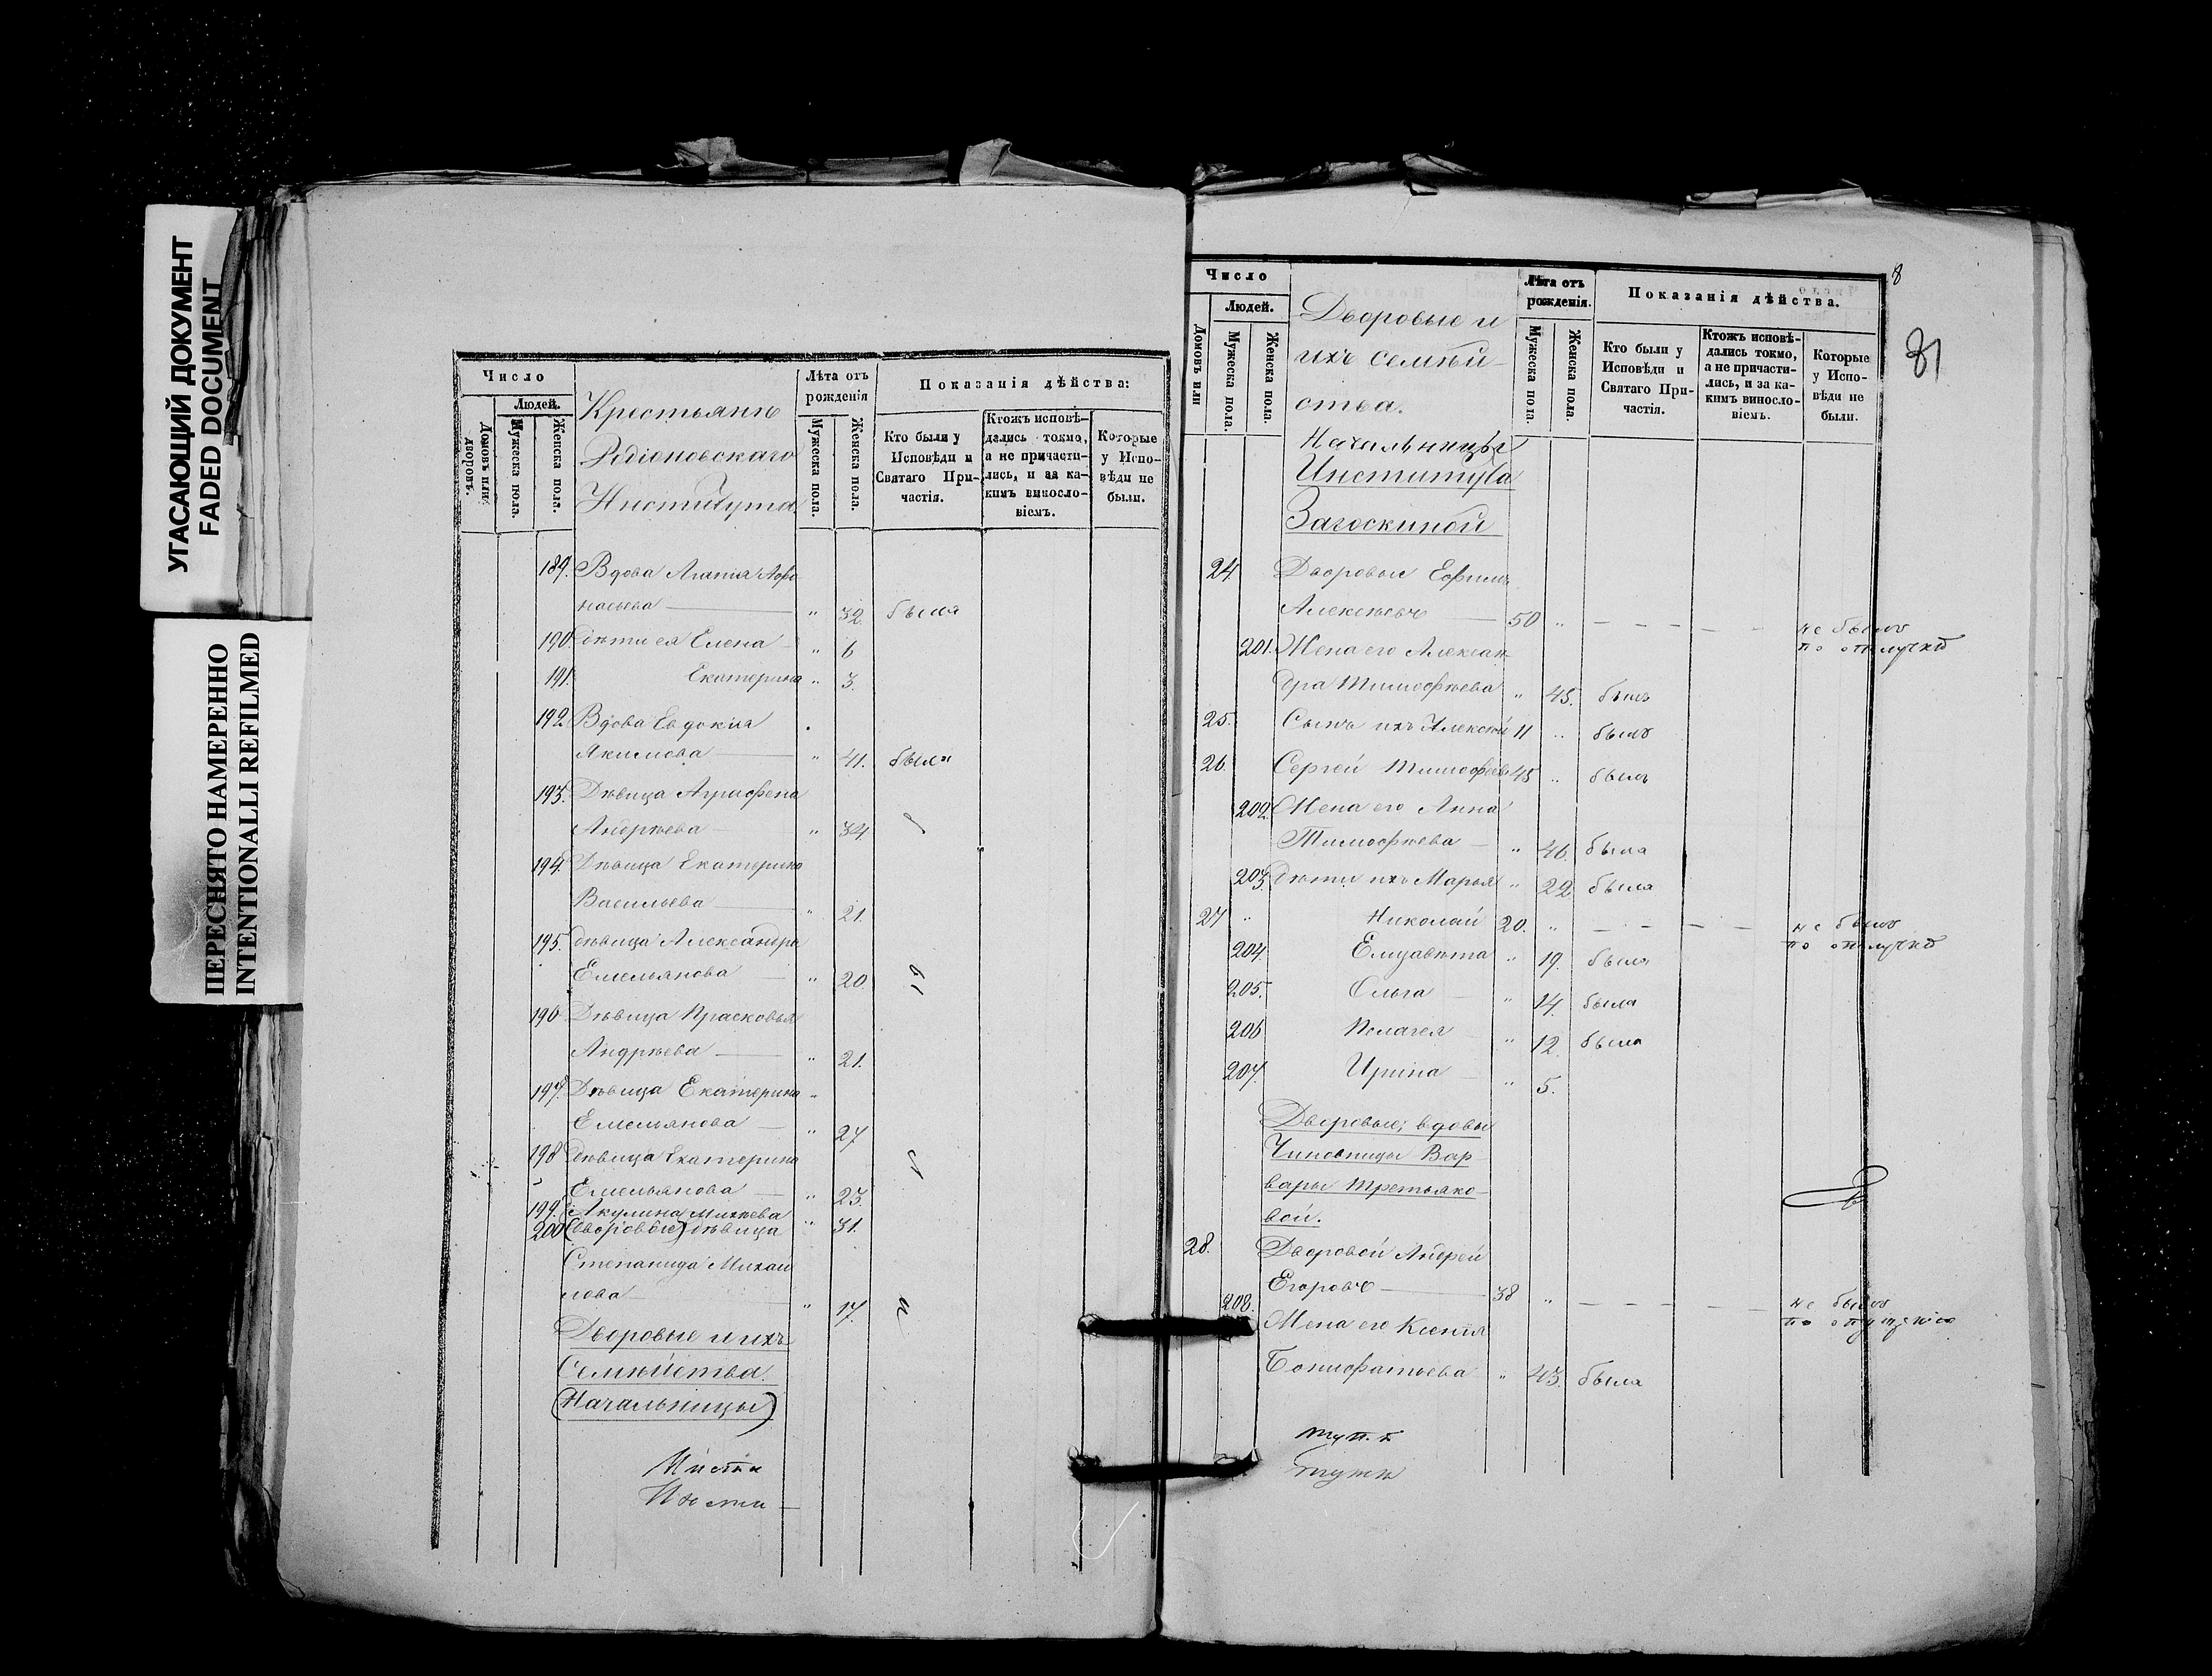 УГАСАЮЩИЙ ДОКУМЕНТ
FADED DOCUMENT
ПЕРЕСНЯТО НАМЕРЕННО
INTENTIONALLI REFILMED
Число
Людей.
Домовъ или дворовъ.
Мужеска пола.
Женска пола.
Крестьянъ
Родіоновскаго
Института
Лѣта отъ рожденія
Мужеска пола.
Женска пола.
Показанія дѣйства:
Кто были у Исповѣди и Святаго Причастія.
Ктожъ исповѣдались токмо, а не причастились, и за какимъ винословіемъ.
Которые у Исповѣди не были.
189. Вдова Агапія Афо
насьева " 32. была
190. дѣти ея Елена " 6
191. Екатерина " 3.
192. Вдова Евдокия
Якимова " 41. была
193. Дѣвица Агрофена
Андрѣева " 34.
194. Дѣвица Екатерина
Васильева " 21.
195. дѣвица Александра
Емельянова " 20
196 Дѣвица Прасковья
Андрѣева " 21.
197. Дѣвица Екатерина "
Емельянова " 27
198 дѣвица Екатерина
Емельянова " 23.
199. Акулина Михѣева
200 (дворовые) дѣвица " 31.
Степанида Михаи
лова " 17.
Дворовые и ихъ
Семѣйства.
(Начальницы)
Инсти
8
81
Число
Людей.
Домовъ или
Мужеска пола.
Женска пола.
Дворовые и
ихъ семѣй
ства.
Начальницы
Института
Загоскиной
Лѣта отъ рожденія.
Мужеска пола.
Женска пола.
Показанія дѣйства.
Кто были у Исповѣди и Святаго Причастія.
Ктожъ исповѣдались токмо, а не причастились, и за какимъ винословіемъ.
Которые у Исповѣди не были.
24. Дворовые Ефимъ
Алексѣевъ 50 " не былъ
по отлучкѣ
201. Жена его Алексан
дра Тимофѣева " 45. была
25. Сынъ ихъ Алексѣй 11 " былъ
26. Сергѣй Тимофеевъ 45 " былъ
202. Жена его Анна
Тимофѣева " 46. была
203. дѣти ихъ Марья " 22 была
27 " Николай 20. " не былъ
по отлучкѣ
204. Елизавѣта " 19. была
205. Ольга " 14. была
206 Пелагея " 12. была
207. Ирина " 5.
Дворовые; вдовы
Чиновницы Вар
вары Третьяко
вой.
28. Дворовой Андрей
Егоровъ 38 " не былъ
по опущенію
208. Жена его Ксенія
Бонифатьева " 43. была